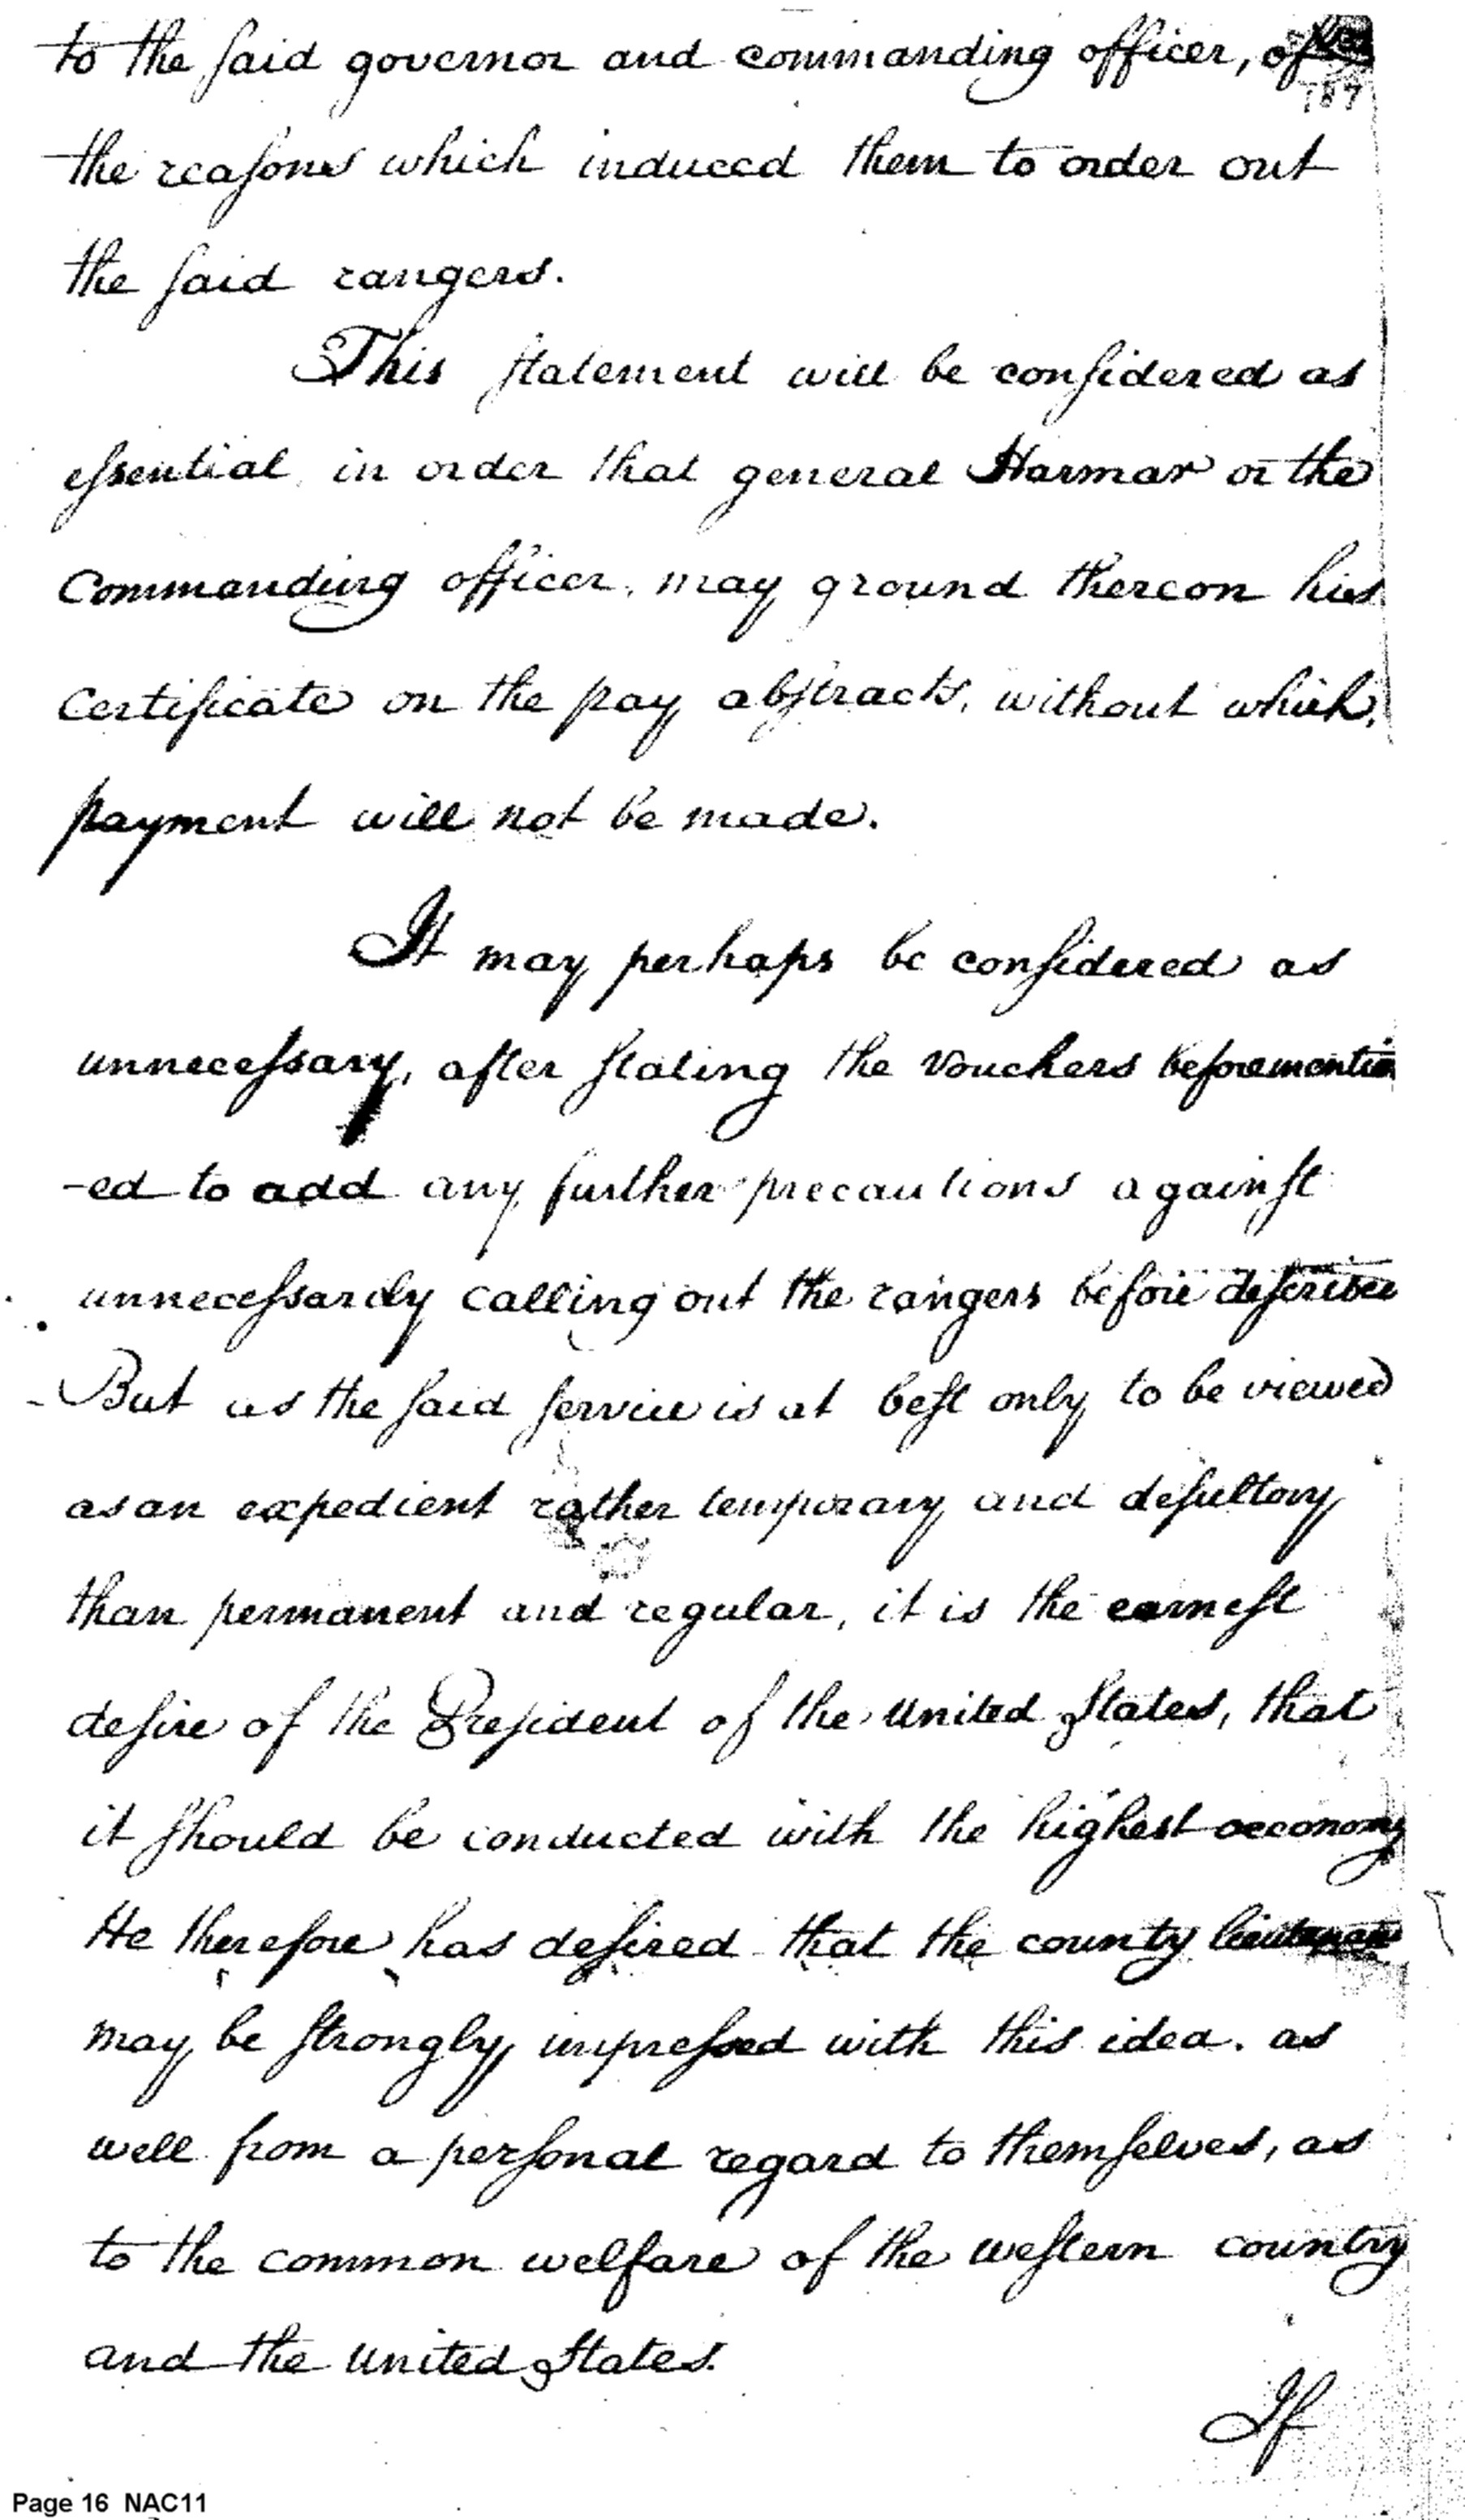 to the said governor and commanding officer, of
187
the reasons which induced them to order out
the said rangers.
This statement will be considered as
essential in order that general Harmar or the
Commanding officer, may ground thereon his
Certificate on the pay abstracts, without which,
payment will not be made.
It may perhaps be considered as
unnecessary, after stating the Vouchers beforemention
-ed to add any further precautions against
unnecessarily calling out the rangers before described
But as the said service is at best only to be viewed
as an expedient rather temporary and desultory
than permanent and regular, it is the earnest
desire of the President of the United States, that
it should be conducted with the highest oeconomy
He therefore has desired that the county lieutenants
may be strongly impressed with this idea. as
well from a personal regard to themselves, as
to the common welfare of the western country
and the United States.
If
Page 16 NAC11